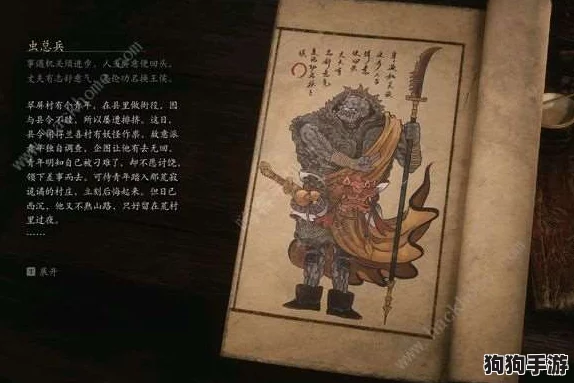 虫总兵
事遇机关须进步，人当得意便回头，
丈夫有志舒意气，要伦功名换王侯。
翠屏村有个青年，在县里做衙役，因
与县令不睦，所以屡遭排挤。这日，
县令闻得兰喜村有妖怪作祟，故意派
青年独自调查，企图让他有去无回。
青年明知自己被刁难了，却不愿讨饶，
领下差事而去。可待青年踏入那荒寂
诡谲的村庄，立刻后悔起来，但日已
西沉，他又不熟山路，只好留在荒村
里过夜。
……
展开
狗狗手游